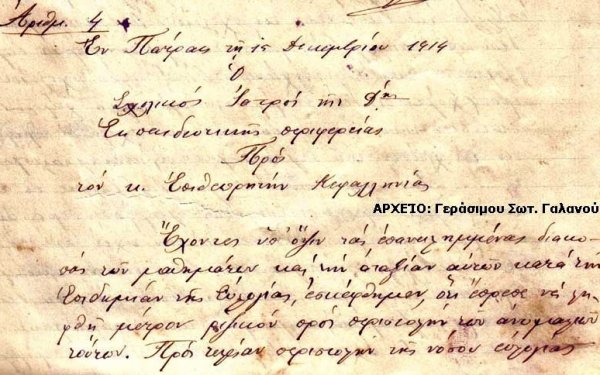 Αριθμ. 4
Εν Πάτραις τη 15 Δεκεμβρίου 1914
Ο
Σχολικός Ιατρός της θ´ης
Εκπαιδευτικής περιφερείας
Προς
τον κ. Επιθεωρητήν Κεφαλληνίας
ΑΡΧΕΊΟ: Γεράσιμου Σωτ. Γαλανού
Έχοντες υπ' όψιν τας επανειλημμένας διακο-
πάς των μαθημάτων και την αταξίαν αυτών κατά την
Επιδημίαν της Ευλογίας, εσκέφθημεν, ότι έπρεπε να λη-
φθή μέτρον ριζικόν προς περιστολήν των ανωμαλιών
τούτων. Προς περιστολήν της νόσου ευλογίας